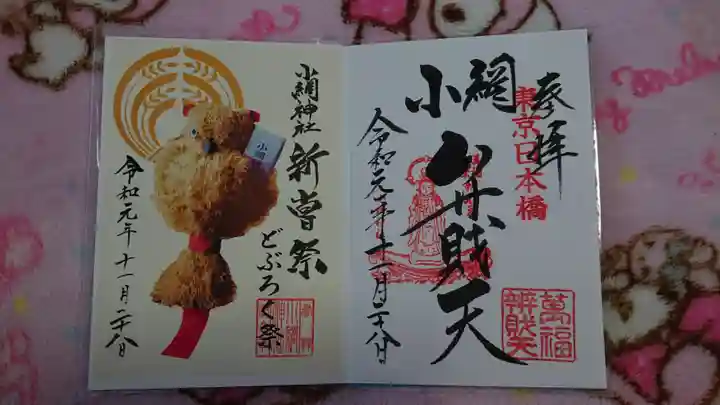 奉拝
東京日本橋
小網
弁財天
令和元年十一月二十八日
萬福
辨財天
小網神社
新嘗祭
どぶろく祭
小網
令和元年十一月二十八日